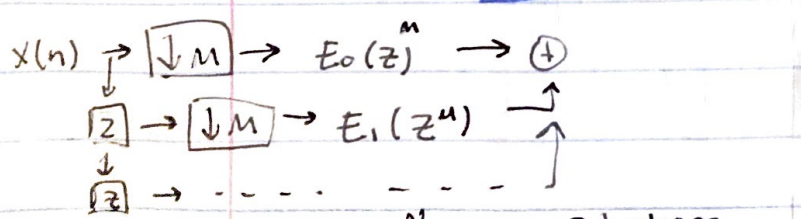 x(n) → ↓M → E₀(z)ᴹ → +
z → ↓M → E₁(zᴹ)
z → - - - - - - -